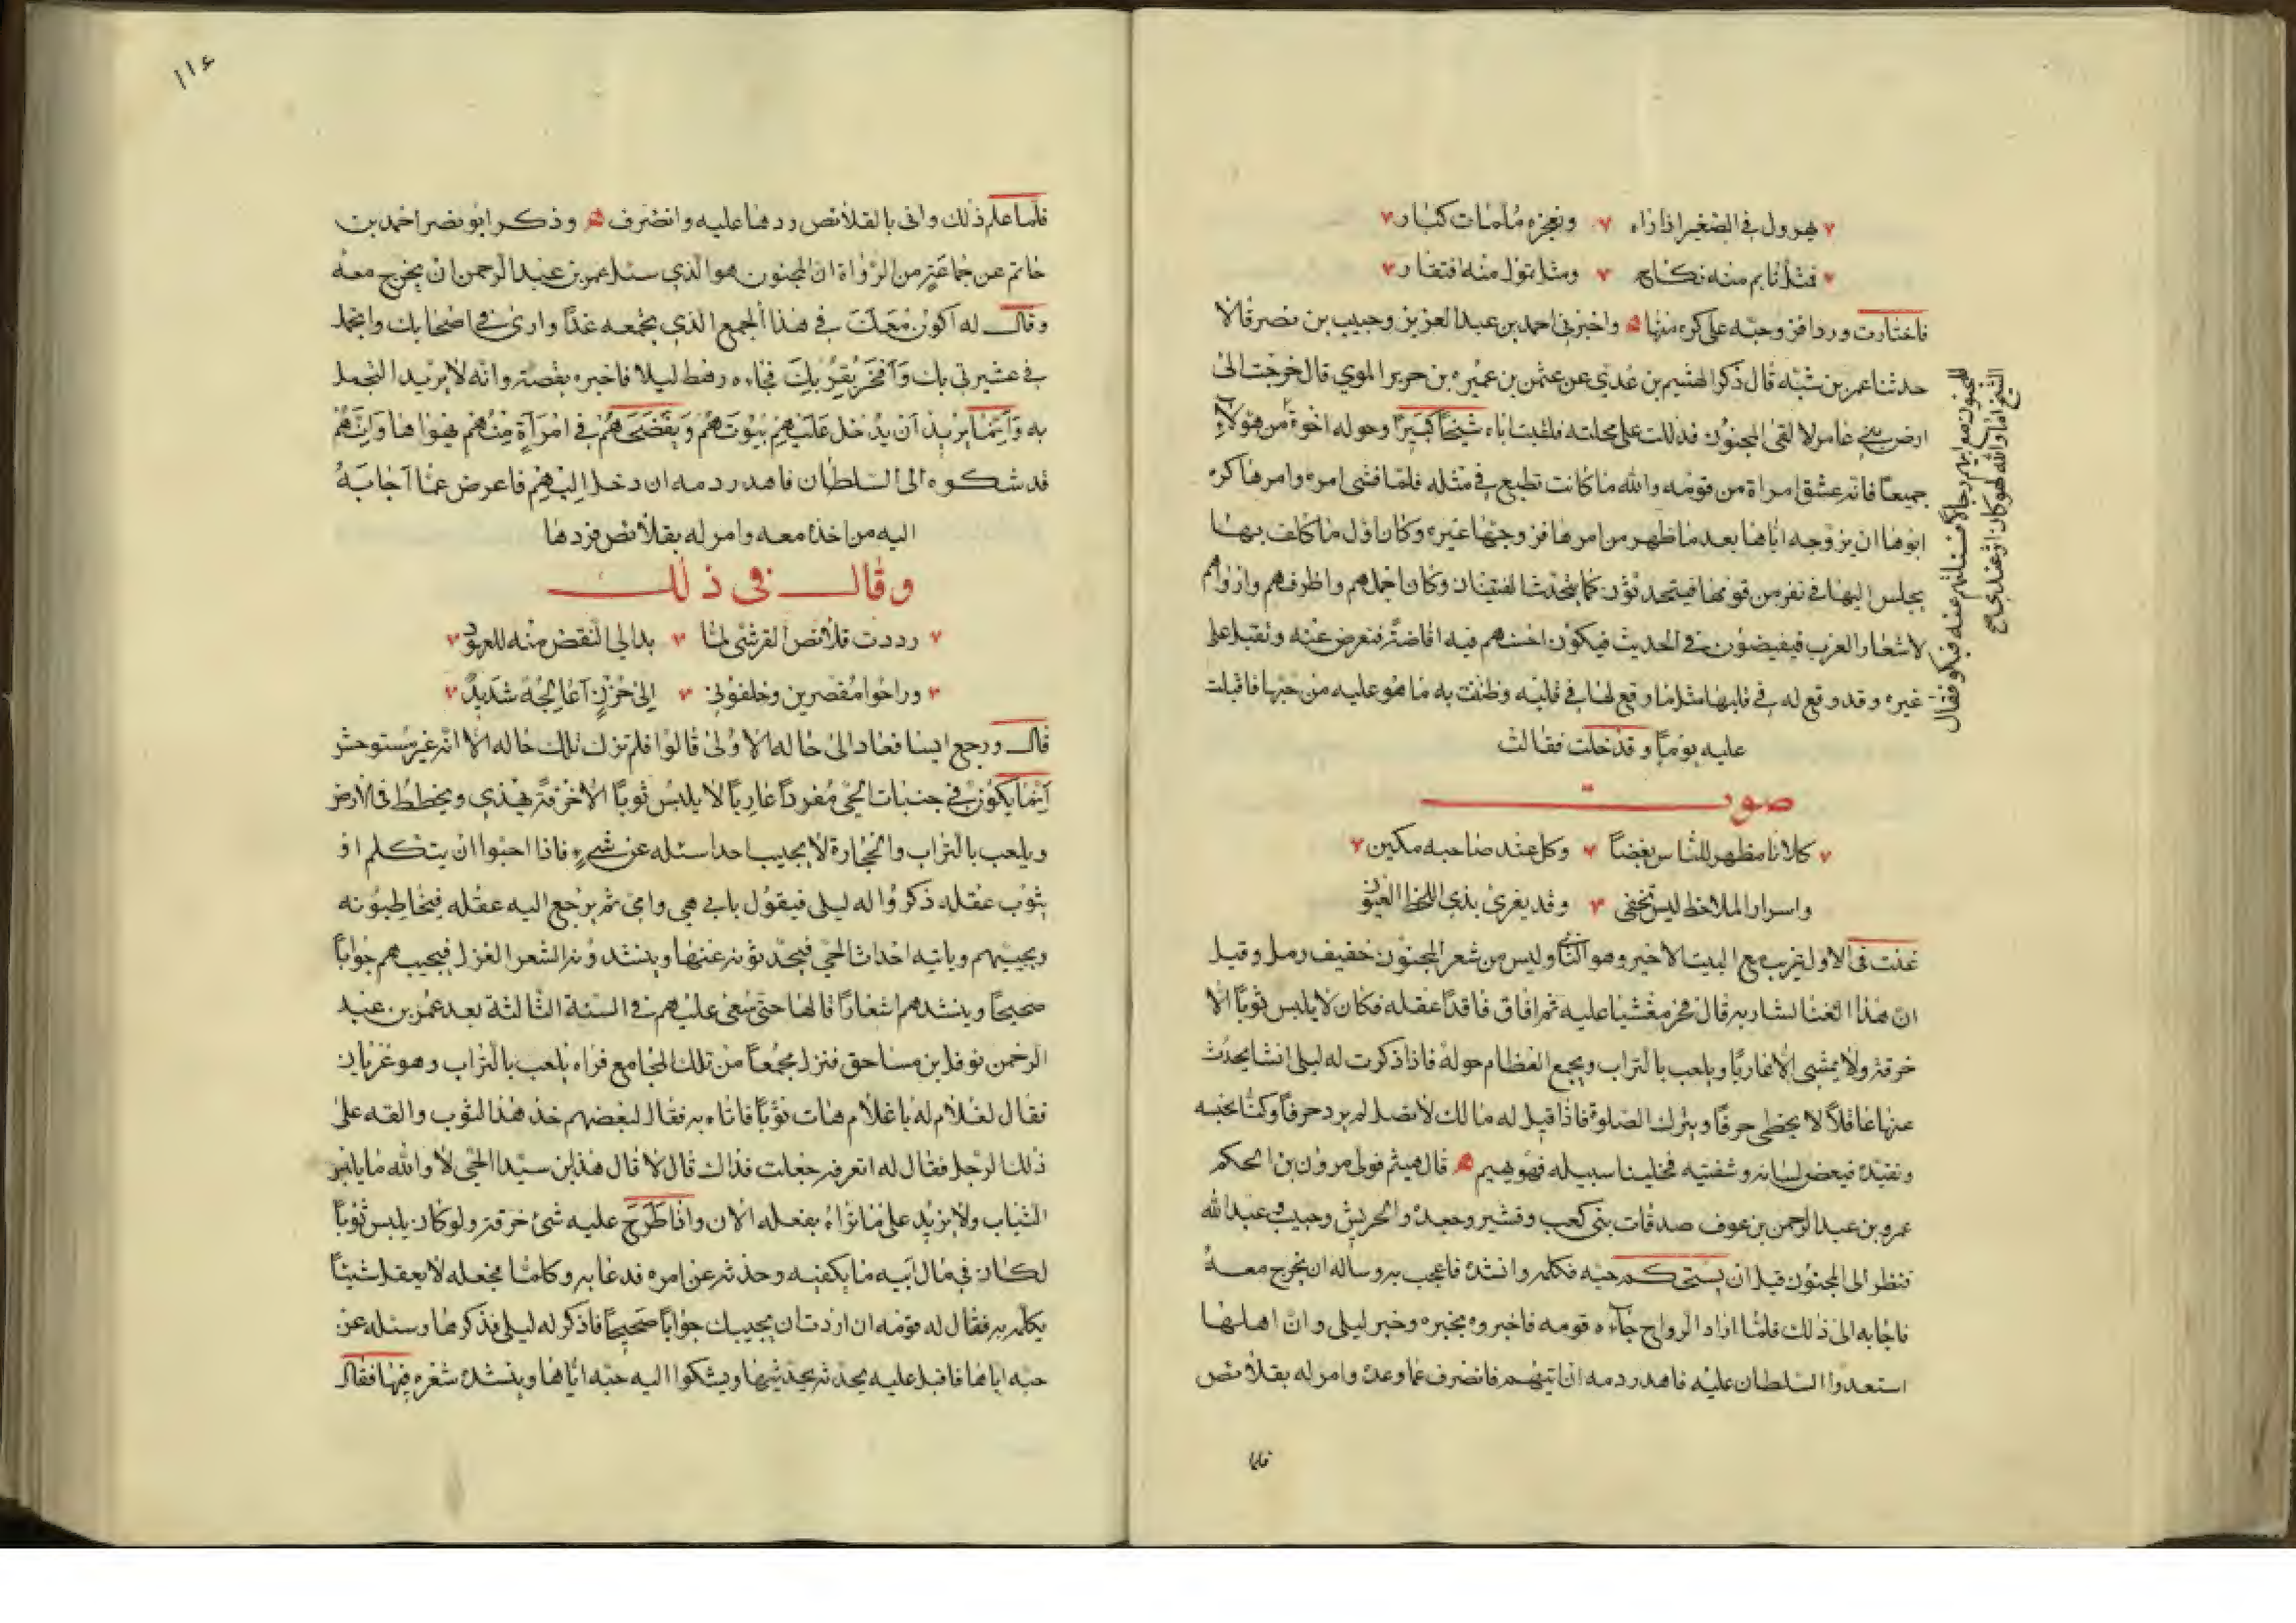 يهرول في الصغير اذا راه وتعجزه ملمات كبار
فمثل تايم منه نكاح ومثل تمول منه افتقار
فاختارت ورد افتزوجته على كره منها واخبرني احمد بن عبد العزيز وحبيب بن نصر قالا
حدثنا عمر بن شبه قال ذكر الهيثم بن عدي عن عثمن بن عميره بن حرير الموي قال خرجت الى
ارض بني عامر لا لقى المجنون فدللت على محلته فلقيت اباه شيخاً كبيراً وحوله اخوة من هولاء
للمجنون مع ابيهم رجالاً فسئلتهم عنه فبكوا وقال
الشيخ اما والله لهو كان اثر عندي من
جميعاً فانه عشق امراة من قومه والله ما كانت تطمع في مثله فلما فشى امره وامرها كره
ابوها ان يزوجه اياها بعد ما ظهر من امرها فزوجها غيره وكان اول ما كلف بها
يجلس اليها في نفر من قومها فيتحدثون كما يتحدث الفتيان وكان اجملهم واظرفهم وارواهم
لاشعار العرب فيفيضون في الحديث فيكون احسنهم فيه افاضة فتعرض عنه وتقبل على
غيره وقد وقع له في قلبها مثل ما وقع لها في قلبه وظنت به ما هو عليه من حبها فاقبلت
عليه يوماً وقد خلت فقالت
صوت
كلانا مظهر للناس بغضاً وكل عند صاحبه مكين
واسرار الملاحظ ليس تخفى وقد يغرى بذي اللحظ العيون
غنت في الاول عريب مع البيت الاخير وهو الثاني وليس من شعر المجنون خفيف رمل وقيل
ان هذا الغنا لشاريه قال فخر مغشيا عليه ثم افاق فاقداً عقله فكان لا يلبس ثوباً الا
خرقه ولا يمشي الا عارياً ويلعب بالتراب ويجمع العظام حوله فاذا ذكرت له ليلى انشا يحدث
عنها عاقلاً لا يخطي حرفاً ويترك الصلوة فاذا قيل له مالك لا تصل لم يرد حرفاً وكنا نحبسه
ونقيده فيعض لسانه وشفتيه فخلينا سبيله فهو يهيم قال هيثم فولى مروان بن الحكم
عمرو بن عبد الرحمن بن عوف صدقات بني كعب وقشير وجعده والحريش وحبيب وعبد الله
فنظر الى المجنون قبل ان يستحكم حبه فكلمه وانشده فاعجب به وساله ان يخرج معه
فاجابه الى ذلك فلما اراد الرواح جآءه قومه فاخبروه بخبره وخبر ليلى وان اهلها
استعدوا السلطان عليه فاهدر دمه ان اتيهم فانصرف عما وعده وامر له بقلائص
فلما
١١٤
فلما علم ذلك واتى بالقلائص ردها عليه وانصرف وذكر ابو نصر احمد بن
حاتم عن جماعة من الرواة ان المجنون هو الذي سئل عمر بن عبد الرحمن ان يخرج معه
وقال له اكون معك في هذا الجمع الذي تجمعه غداً وارى في اصحابك واتجمل
في عشيرتي بك وافخر بقربك فجاءه رهط ليلا فاخبره بقصته وانه لا يريد التجمل
به وانما يريد ان يدخل عليهم بيوتهم ويفضحهم في امراة منهم يهواها وانهم
قد شكوه الى السلطان فاهدر دمه ان دخل اليهم فاعرض عما اجابه
اليه من اخذه معه وامر له بقلائص فردها
وقال في ذلك
رددت قلائص القرشي لما بدا لي النقض منه للعهود
وراحوا مقصرين وخلفوني الى حزن اعالجه شديد
قال ورجع ايسا فعاد الى حاله الاولى قالوا فلم تزل تلك حاله الا انه غير مستوحش
انما يكون في جنبات الحي مفرداً عارياً لا يلبس ثوباً الا خرقه يهذي ويخطط في الارض
ويلعب بالتراب والحجارة لا يجيب احدا سئله عن شيء فاذا احبوا ان يتكلم او
يثوب عقله ذكروا له ليلى فيقول بابي هي وامي ثم يرجع اليه عقله فيخاطبونه
ويجيبهم وياتيه احداث الحي فيحدثونه عنها وينشدونه الشعر الغزل فيجيبهم جواباً
صحيحاً وينشدهم اشعاراً قالها حتى سعى عليهم في السنة الثالثة بعد عمر بن عبد
الرحمن نوفل بن مساحق فنزل مجمعاً من تلك المجامع فراه يلعب بالتراب وهو عريان
فقال لغلام له يا غلام هات ثوباً فاتاه به فقال لبعضهم خذ هذا الثوب والقه على
ذلك الرجل فقال له اتعرفه جعلت فداك قال لا قال هذا ابن سيد الحي لا والله ما يلبس
الثياب ولا يزيد على ما تراه يفعله الان واذا طرح عليه شئ خرقه ولو كان يلبس ثوباً
لكان في مال ابيه ما يكفيه وحدثه عن امره فدعا به وكلمه فجعله لا يعقل شيئاً
يكلمه به فقال له قومه ان اردت ان يجيبك جواباً صحيحاً فاذكر له ليلى فذكرها وسئله عن
حبه اياها فاقبل عليه يحدثه بحديثها ويشكوا اليه حبه اياها وينشده شعره فيها فقال